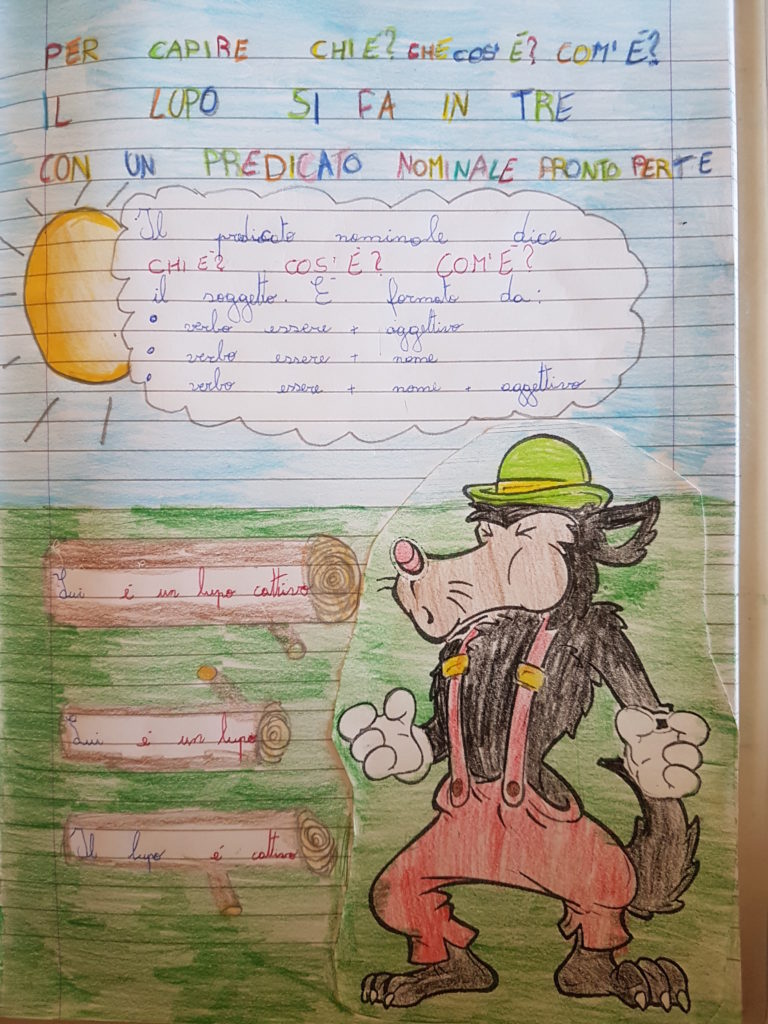 PER CAPIRE CHI É? CHE COS' É? COM'É?
IL LUPO SI FA IN TRE
CON UN PREDICATO NOMINALE PRONTO PER TE
Il predicato nominale dice
CHI É? COS'É? COM'É?
il soggetto. É formato da:
• verbo essere + aggettivo
• verbo essere + nome
• verbo essere + nome + aggettivo
Lui é un lupo cattivo
Lui é un lupo
Il lupo é cattivo